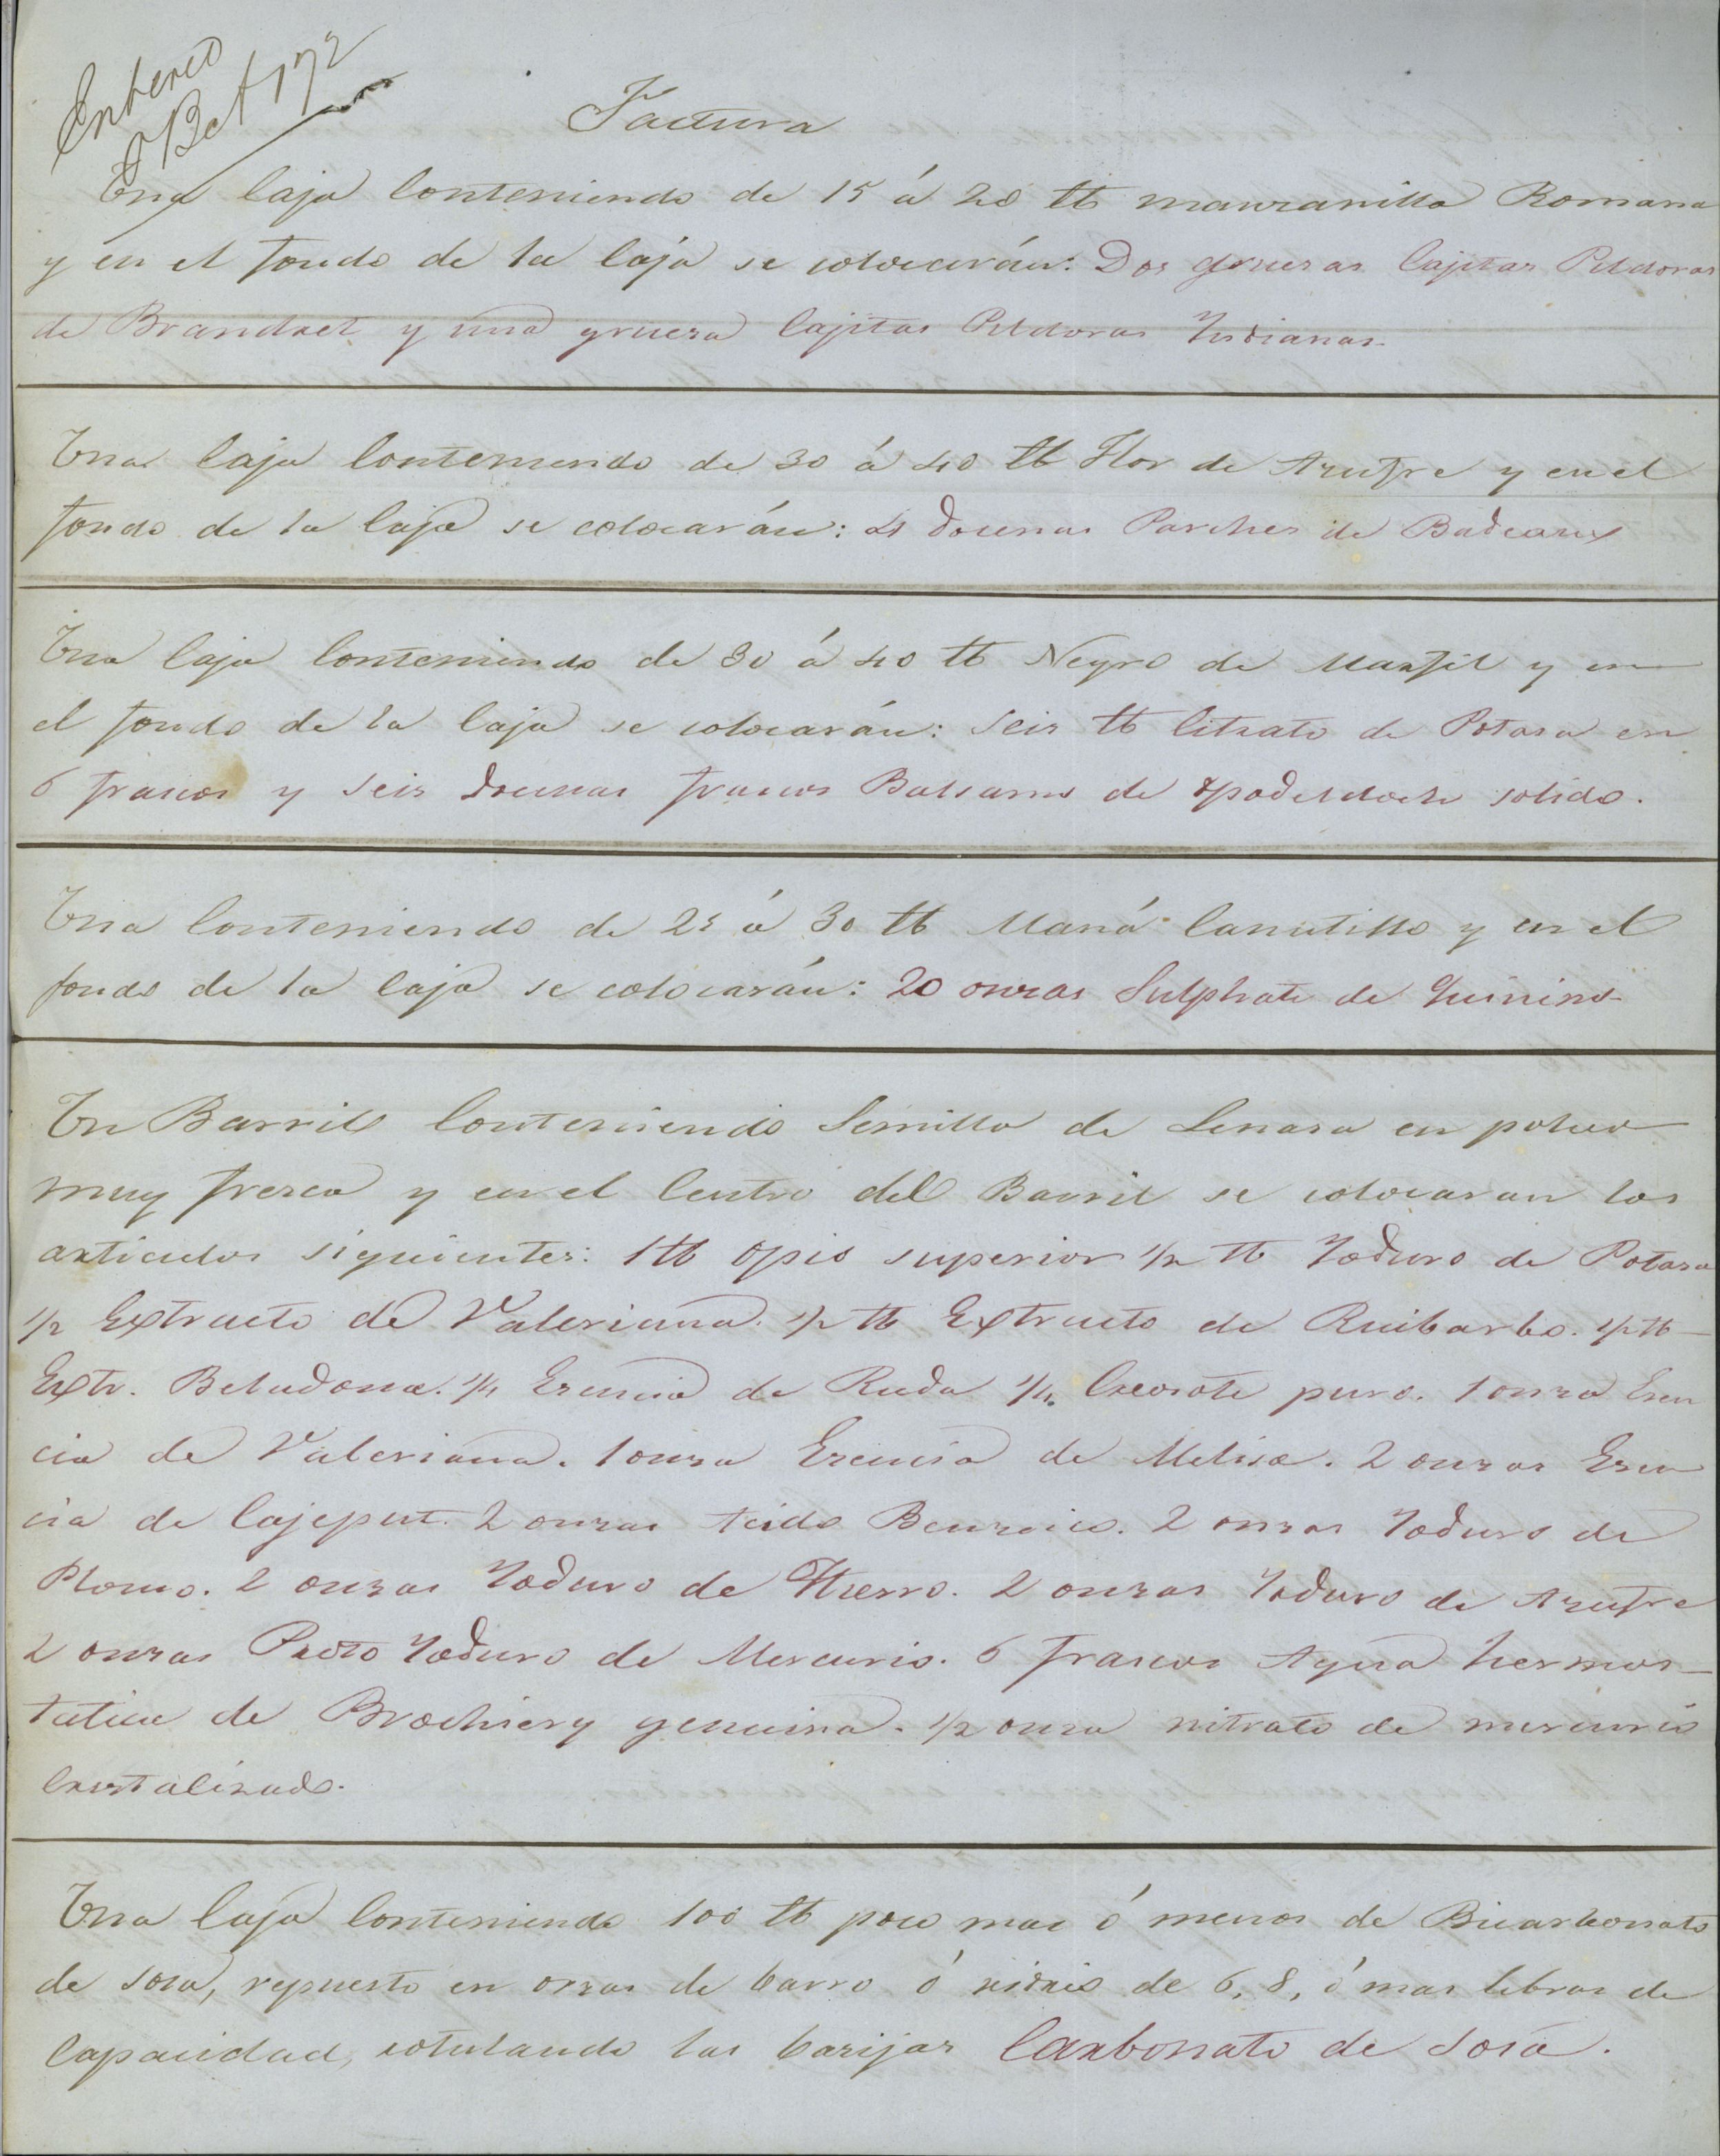 Entered
Factura
Una Caja Conteniendo de 15 á 20 lb manzanilla Romana
y en el fondo de la Caja se colocarán: Dos gruesas Cajitas Pildoras
de Brandret y una gruesa Cajitas Pildoras Indianas.
Una Caja Conteniendo de 30 á 40 lb Flor de Azufre y en el
fondo de la Caja se colocarán: 4 docenas Parches de Badeaux
Una Caja Conteniendo de 30 á 40 lb Negro de Marfil y en
el fondo de la Caja se colocarán: Seis lb Citrato de Potasa en
6 frascos y seis docenas frascos Balsamo de opodeldoch solido.
Una Conteniendo de 25 á 30 lb Maná Canutillo y en el
fondo de la Caja se colocarán: 20 onzas Sulphate de Quinino
Un Barril Conteniendo Semilla de Linaza en polvo
muy fresca y en el Centro del Barril se colocaran los
articulos siguientes: 1 lb opio superior 1/2 lb Yoduro de Potasa
1/2 Extracto de Valeriana. 1/2 lb Extracto de Ruibarbo. 1/2 lb
Extr. Beladona. 1/4 Esencia de Ruda 1/4. Creosote puro. 1 onza Esen
cia de Valeriana. 1 onza Esencia de Melisa. 2 onzas Esen
cia de Cajeput. 2 onzas Acido Benzoico. 2 onzas Yoduro de
Plomo. 2 onzas Yoduro de Hierro. 2 onzas Yoduro de Azufre
2 onzas Proto Yoduro de Mercurio. 6 frascos Agua hermos-
tatica de Brochiery genuina. 1/2 onza nitrato de mercurio
Cristalizado.
Una Caja Conteniendo 100 lb poco mas ó menos de Bicarbonato
de sosa, repuesto en orzas de barro ó vidrio de 6, 8, ó mas libras de
Capacidad, rotulando las basijas Carbonato de Sosa.